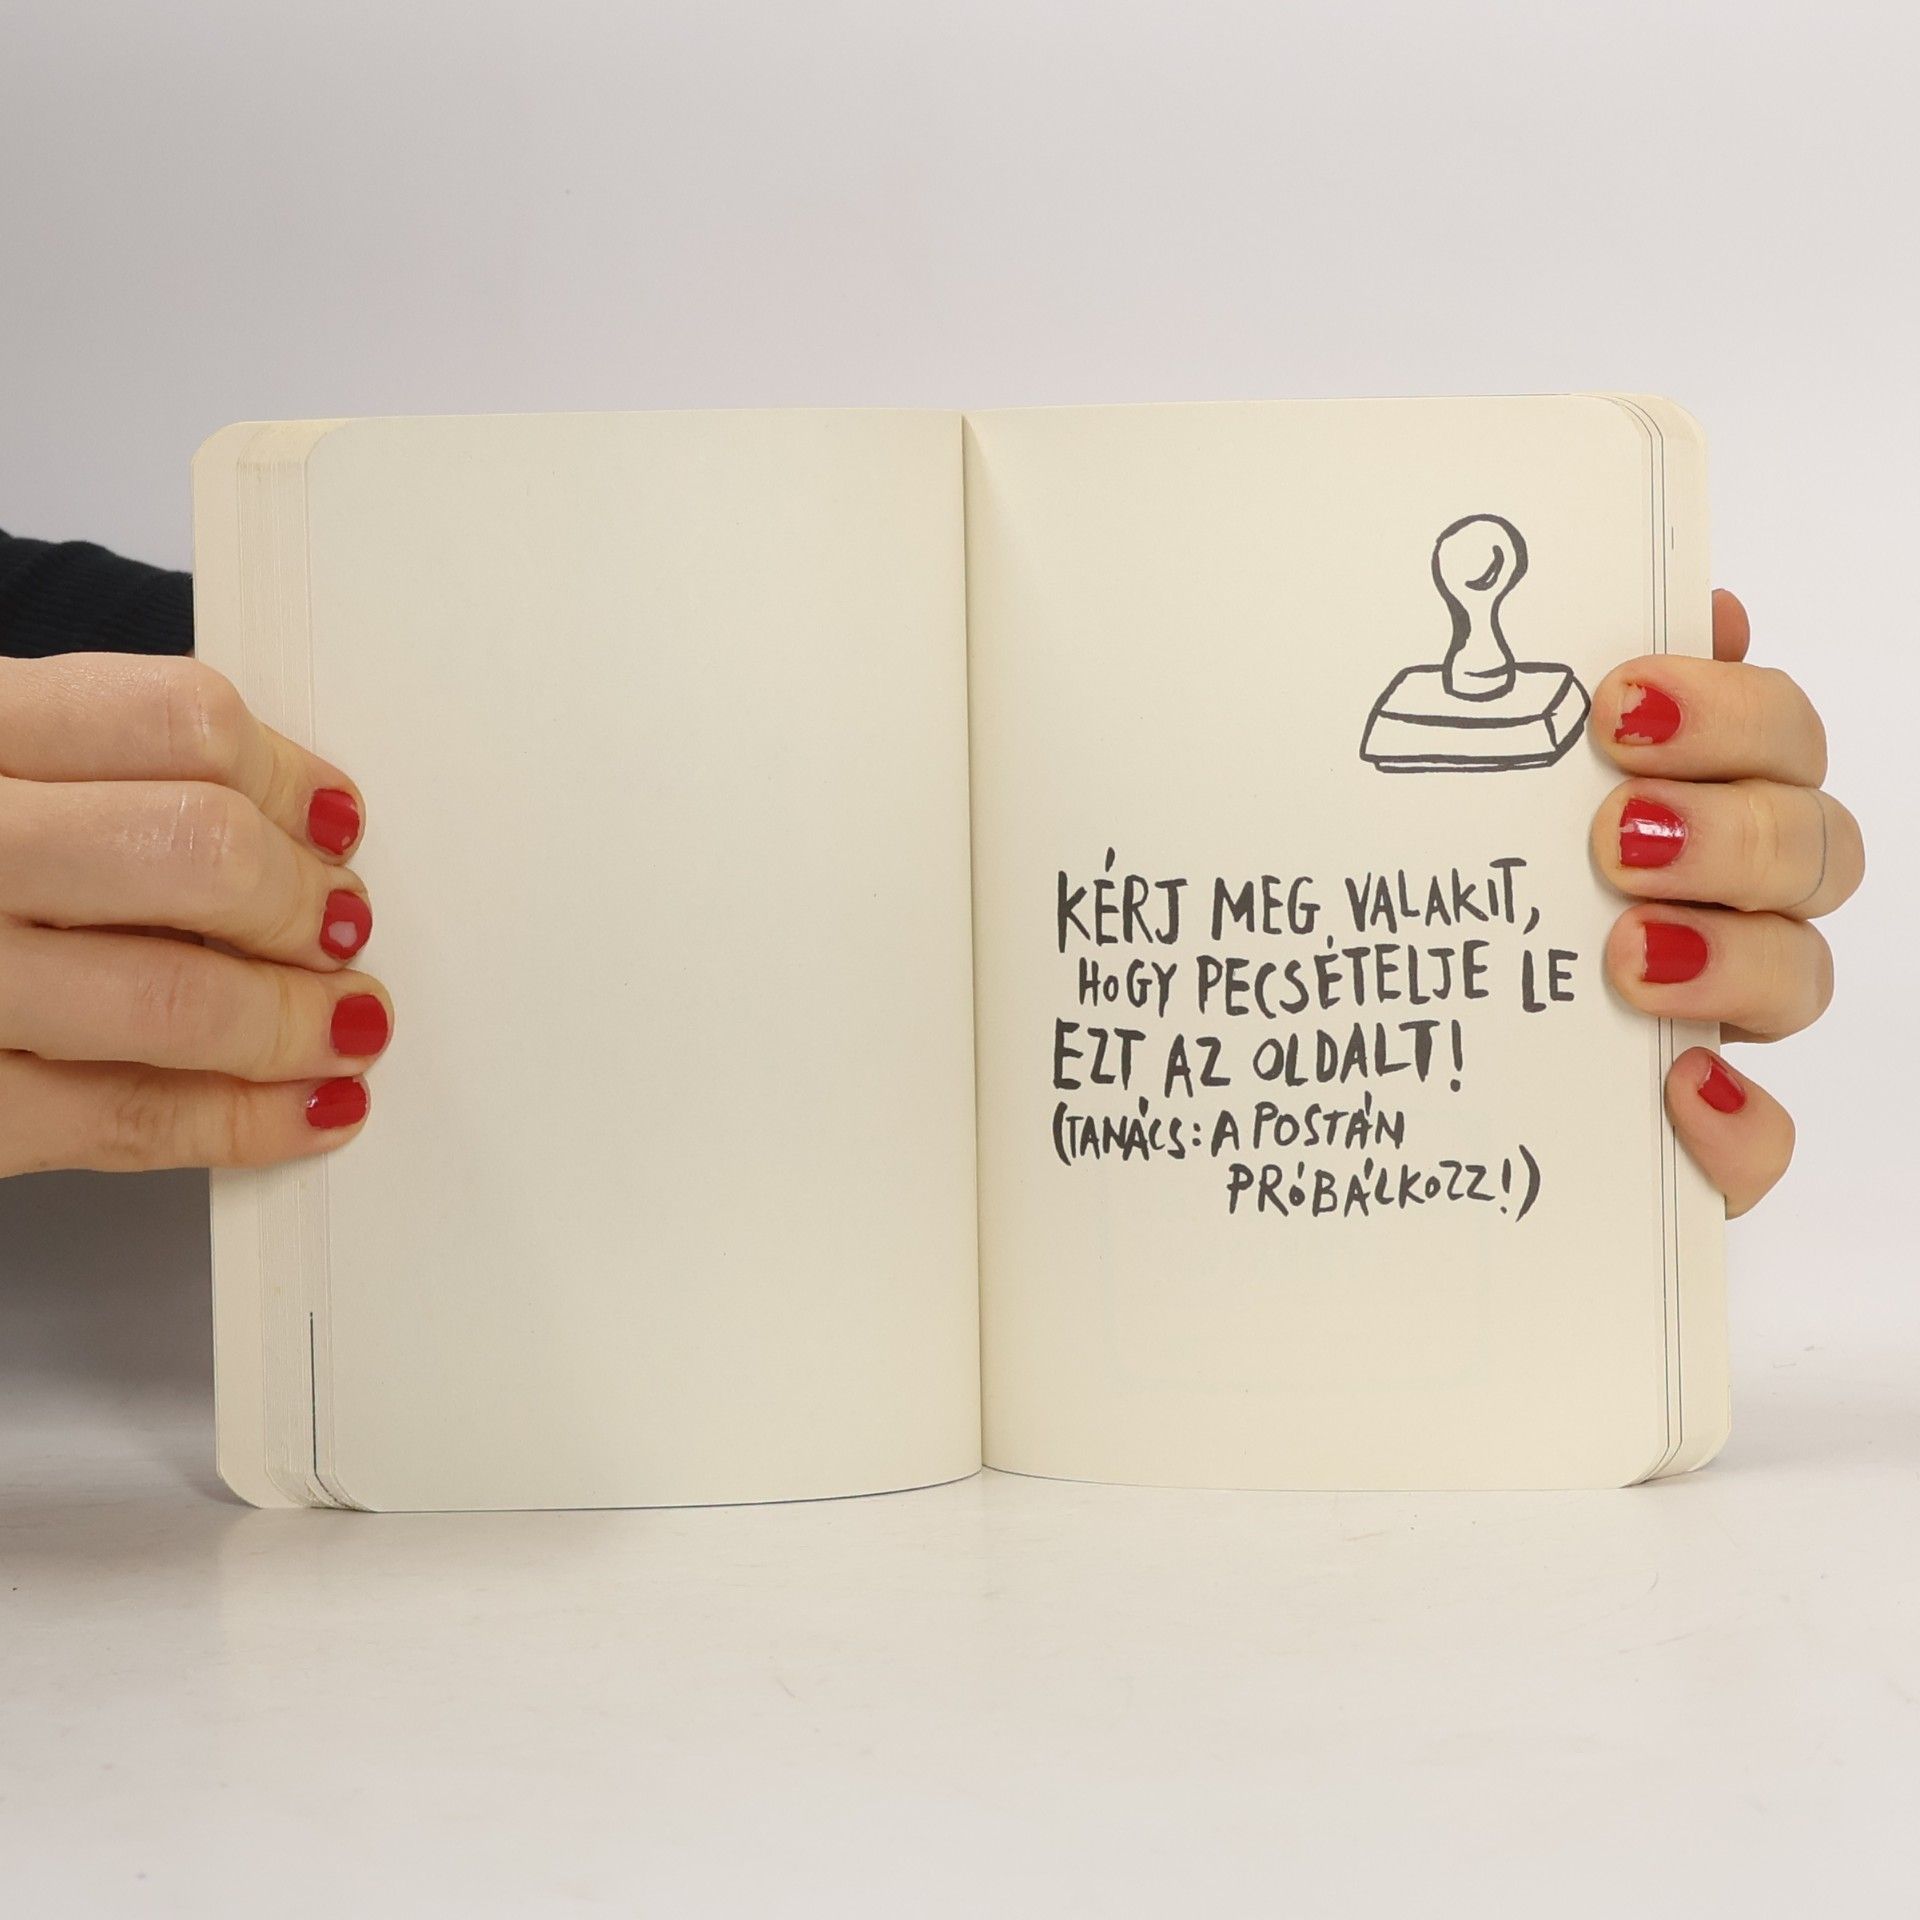 KÉRJ MEG VALAKIT,
HOGY PECSÉTELJE LE
EZT AZ OLDALT!
(TANÁCS: A POSTÁN
PRÓBÁLKOZZ!)